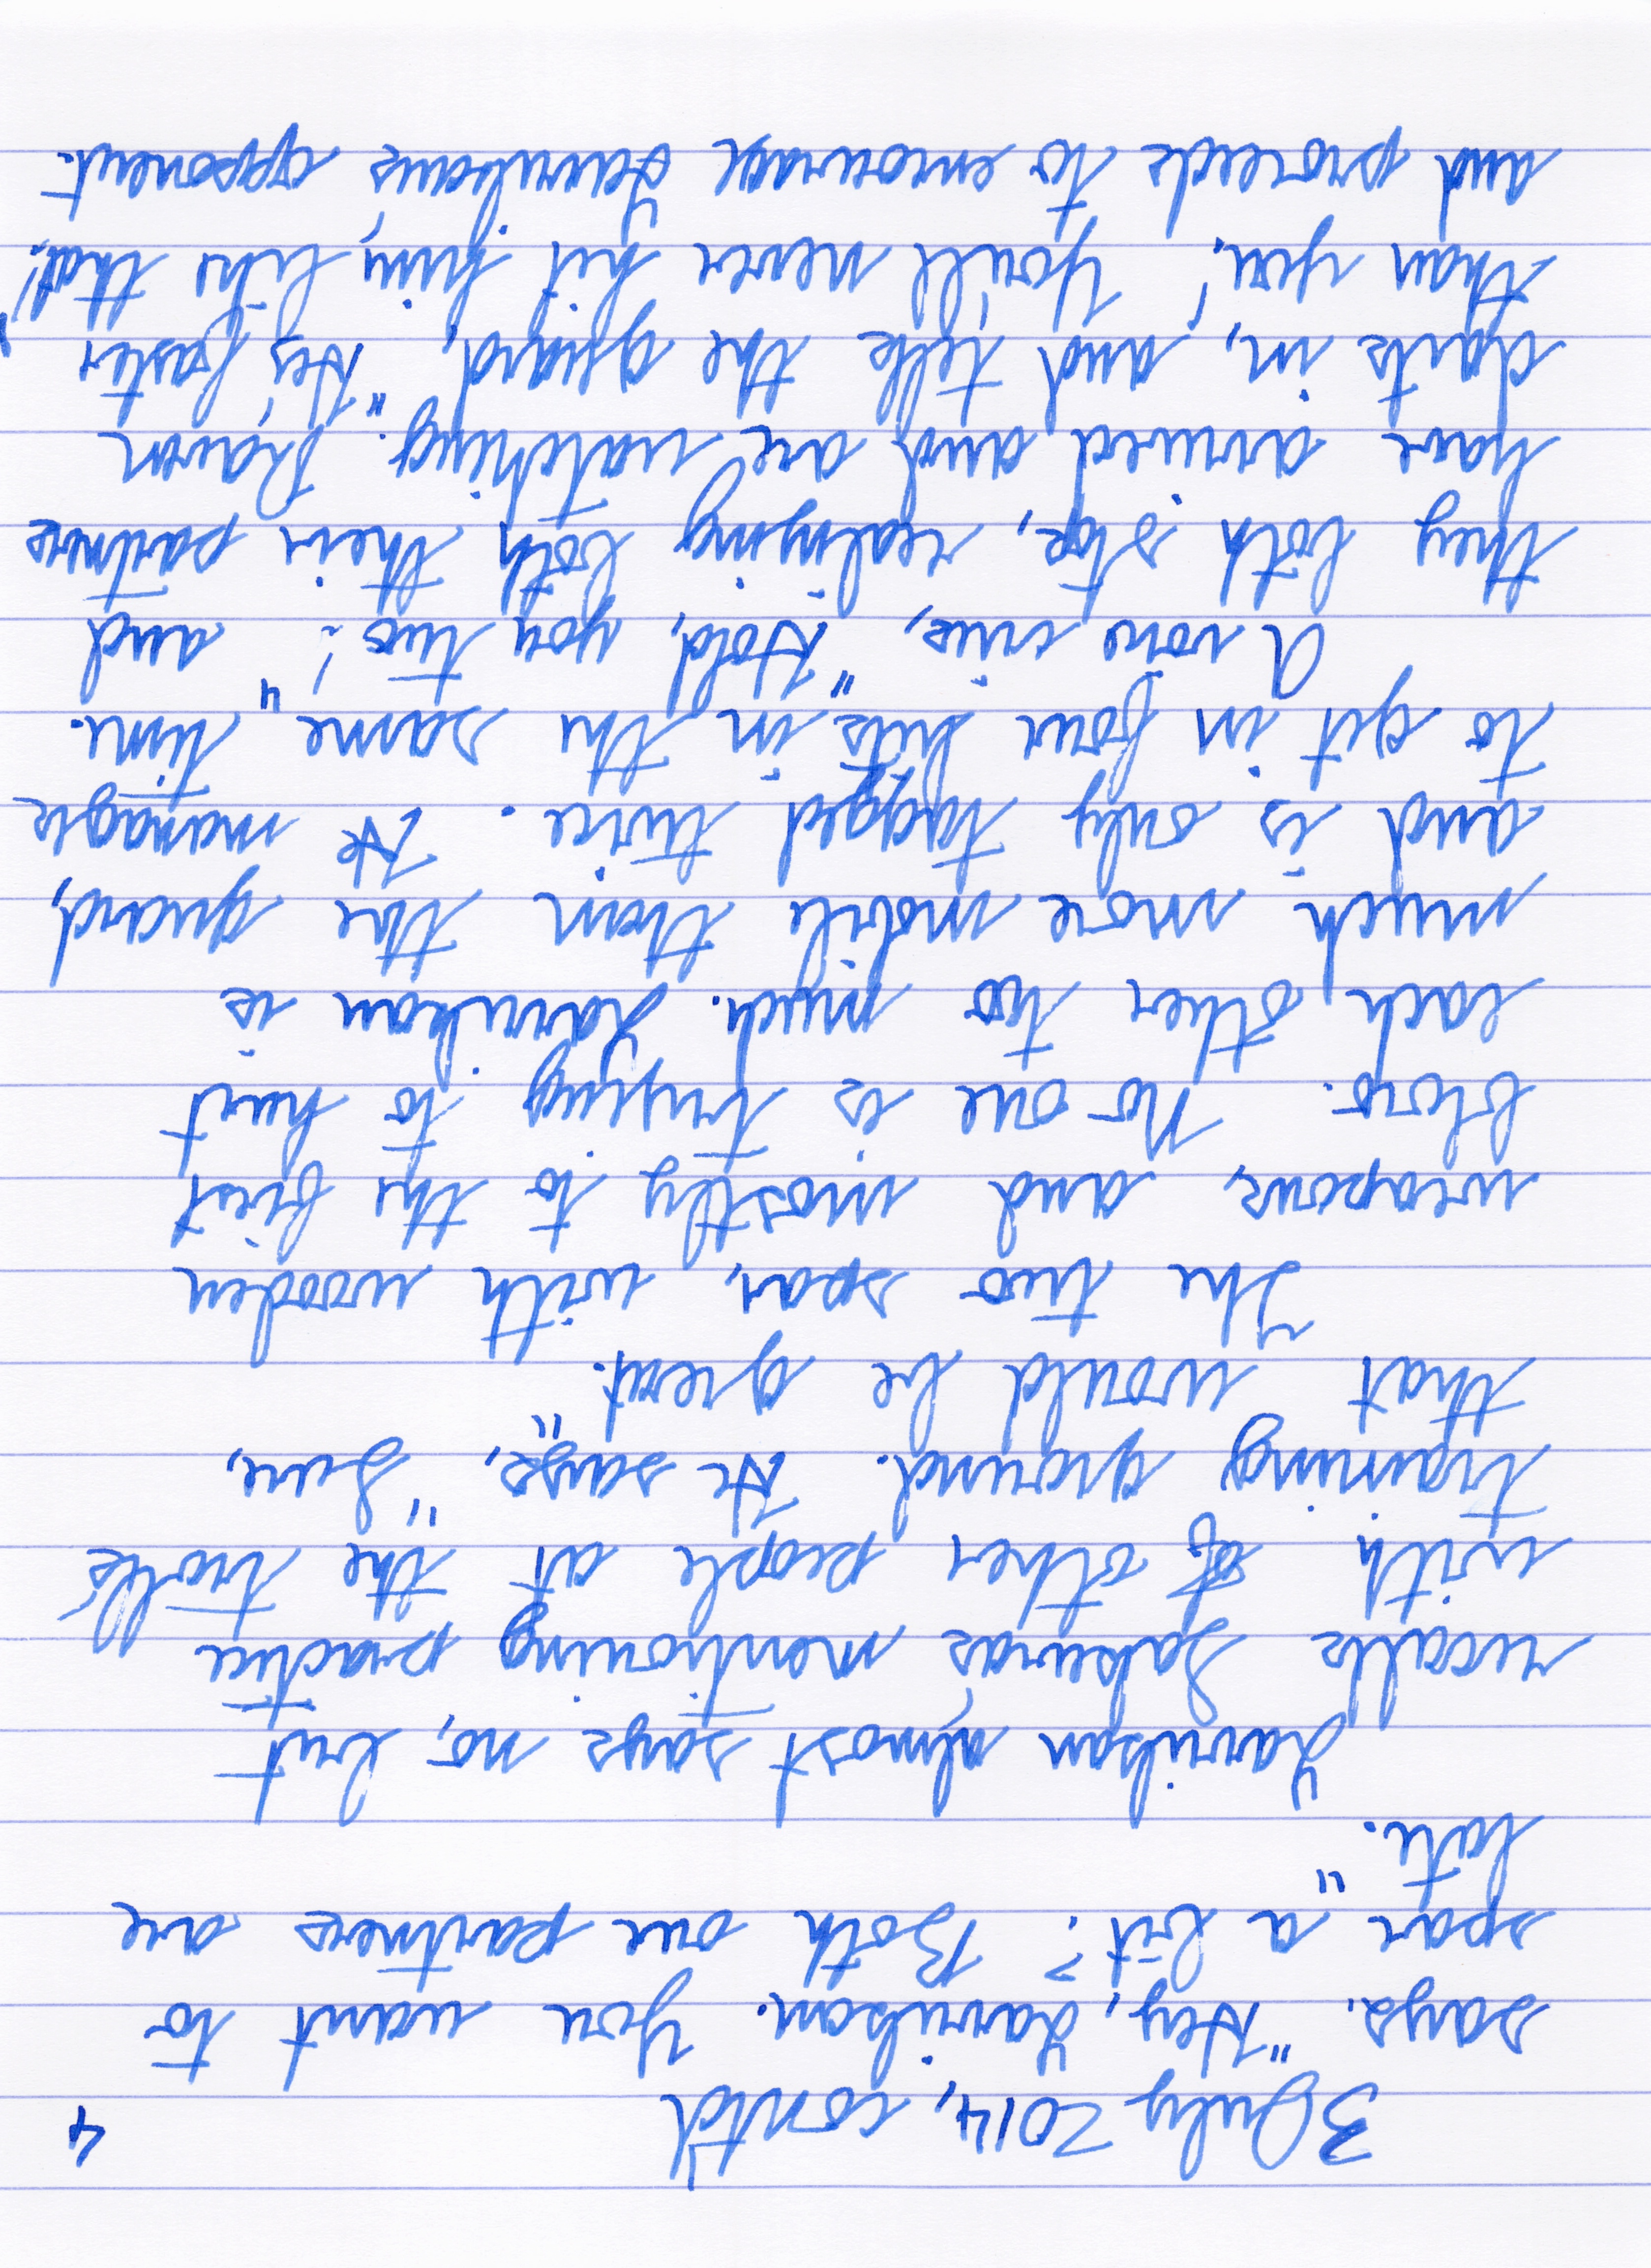 3 July 2014, contd 4
says. "Hey, Jarrikson. You want to
spar a bit? Both our partners are
late."
Jarrikson almost says no, but
recalls Sakura's mentioning practice
with of other people at the trolls'
training ground. He says, "Sure,
that would be great."
The two spar, with wooden
weapons, and mostly to the first
blow. No one is trying to hurt
each other too much. Jarrikson is
much more mobile than the guard,
and is only tagged twice. He manages
to get in four hits in the same time.
A voice cries, "Hold, you two!" and
they both stop, realizing both their partners
have arrived and are watching. Raven
darts in, and tells the guard, "He's faster
than you. You'll never hit him like that!"
and proceeds to encourage Jarrikson's opponent.